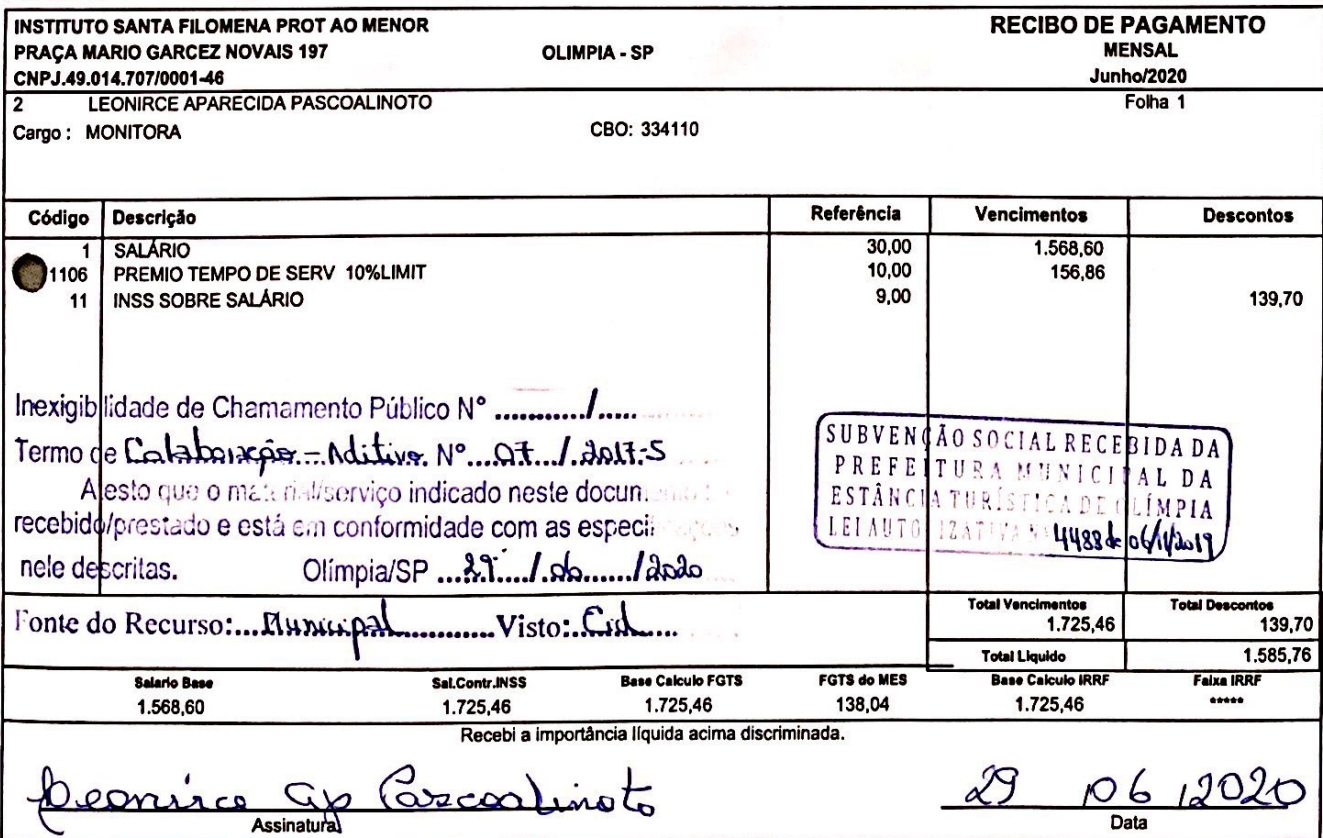 INSTITUTO SANTA FILOMENA PROT AO MENOR
RECIBO DE PAGAMENTO
PRAÇA MARIO GARCEZ NOVAIS 197 OLIMPIA - SP MENSAL
CNPJ.49.014.707/0001-46 Junho/2020
2 LEONIRCE APARECIDA PASCOALINOTO Folha 1
Cargo : MONITORA CBO: 334110
Código Descrição Referência Vencimentos Descontos
1 SALÁRIO 30,00 1.568,60
1106 PREMIO TEMPO DE SERV 10%LIMIT 10,00 156,86
11 INSS SOBRE SALÁRIO 9,00 139,70
Inexigibilidade de Chamamento Público Nº .........../.....
Termo de Colaboração - Aditivo Nº 07 / 2017-S
Atesto que o material/serviço indicado neste docum
recebido/prestado e está em conformidade com as especificações
nele descritas. Olímpia/SP 29 / 06 / 2020
SUBVENÇÃO SOCIAL RECEBIDA DA
PREFEITURA MUNICIPAL DA
ESTÂNCIA TURÍSTICA DE OLÍMPIA
LEI AUTORIZATIVA Nº 4488 de 06/11/2019
Fonte do Recurso: Municipal Visto:
Total Vencimentos Total Descontos
1.725,46 139,70
Total Liquido 1.585,76
Salario Base Sal.Contr.INSS Base Calculo FGTS FGTS do MES Base Calculo IRRF Faixa IRRF
1.568,60 1.725,46 1.725,46 138,04 1.725,46 *****
Recebi a importância líquida acima discriminada.
Leonirce Ap Pascoalinoto 29 06 / 2020
Assinatura Data